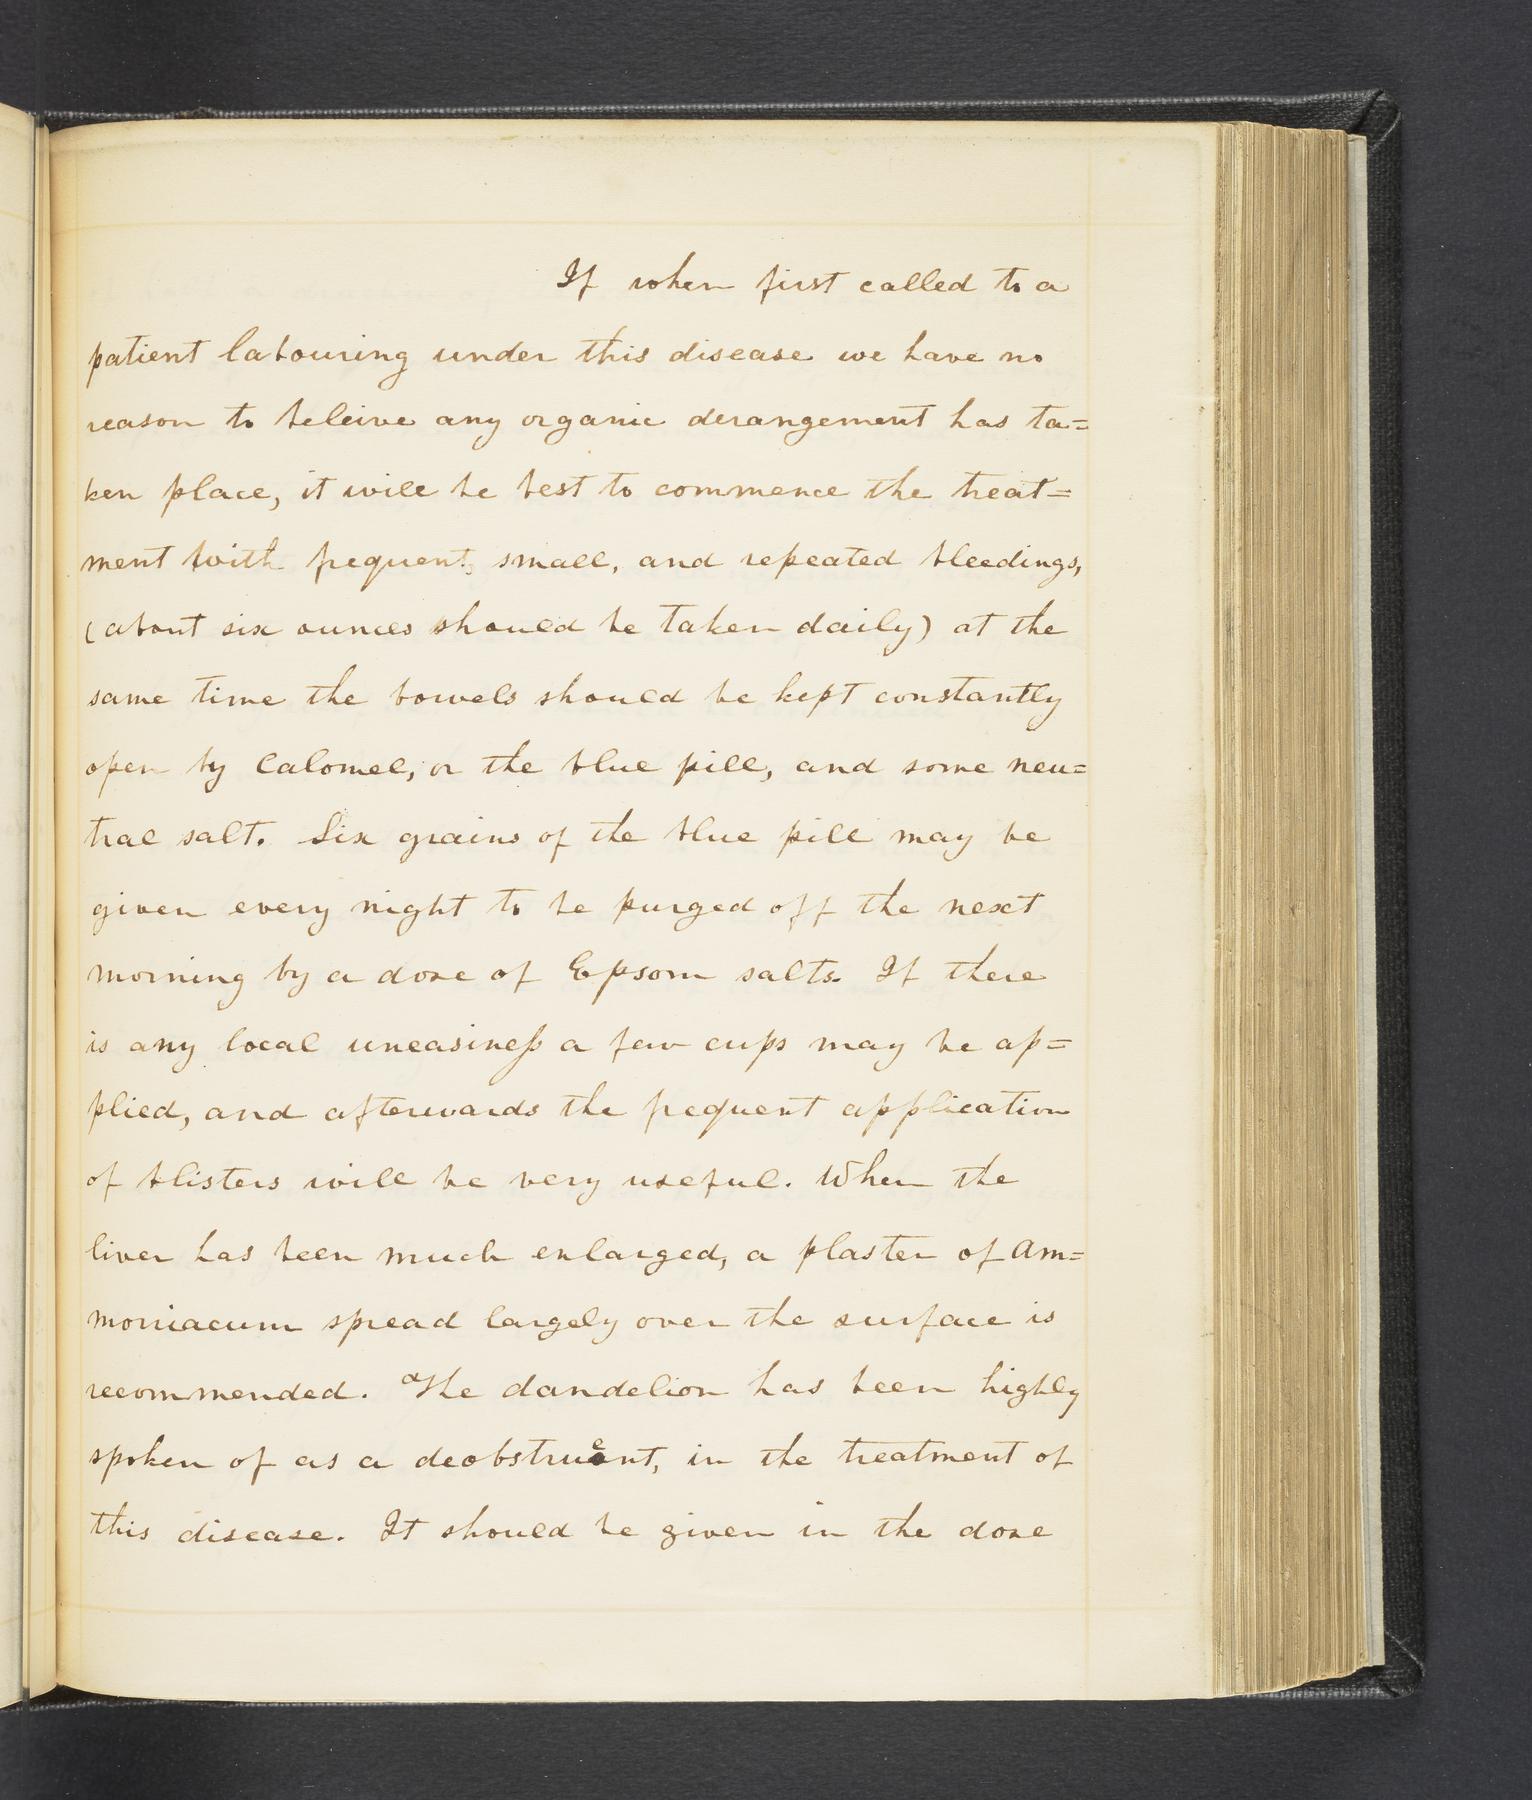 If when first called to a
patient labouring under this disease we have no
reason to beleive any organic derangement has ta=
ken place, it will be best to commence the treat=
ment with frequent, small, and repeated bleedings,
(about six ounces should be taken daily) at the
same time the bowels should be kept constantly
open by Calomel, or the blue pill, and some neu=
tral salt. Six grains of the blue pill may be
given every night to be purged off the next
morning by a dose of Epsom salts. If there
is any local uneasiness a few cups may be ap=
plied, and afterwards the frequent application
of blisters will be very useful. When the
liver has been much enlarged, a plaster of Am=
moniacum spread largely over the surface is
recommended. The dandelion has been highly
spoken of as a deobstruent, in the treatment of
this disease. It should be given in the dose